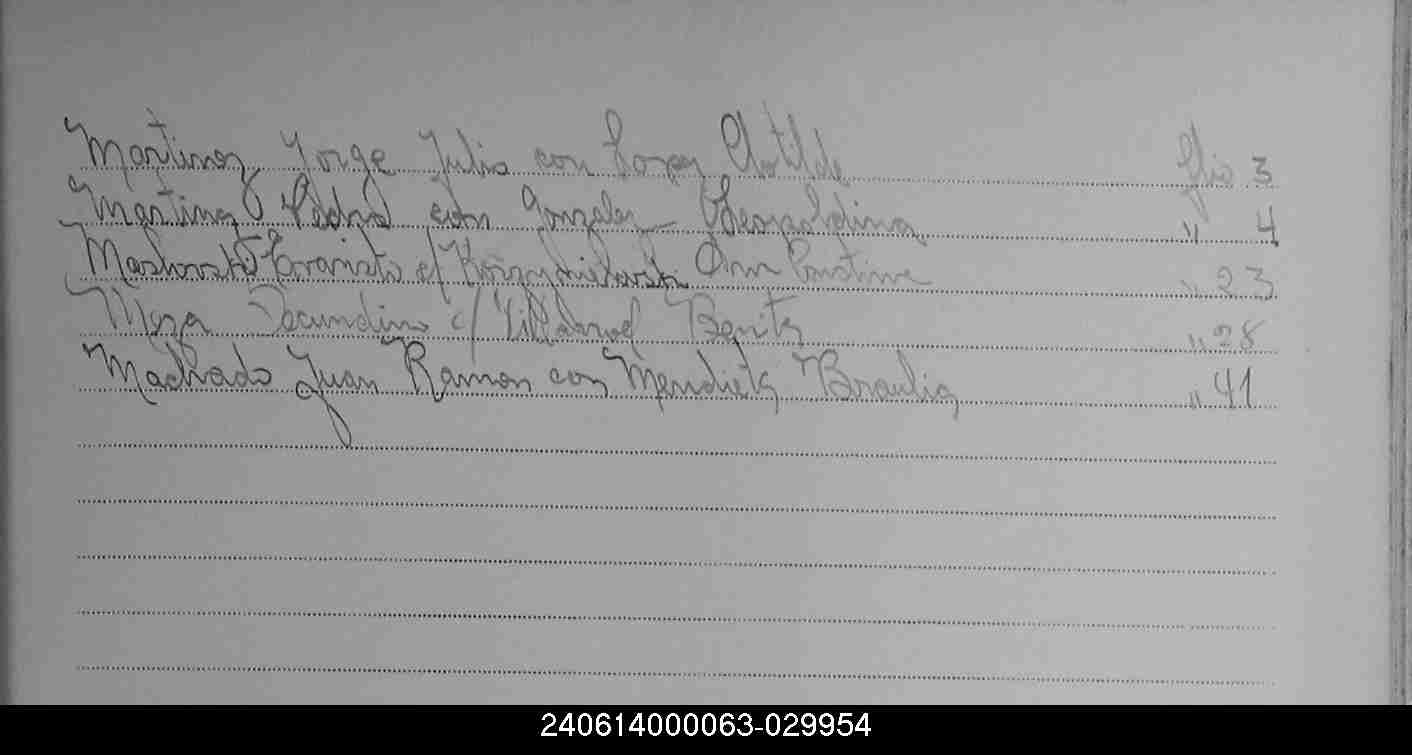 Martinez Jorge Julio con Lopez Clotilde Flio 3
Martinez Pedro con Gonzalez Leopoldina " 4
Evaristo c/ Ana " 23
Meza Secundino c/ Villarroel Benita " 28
Machado Juan Ramon con Mendieta Braulia " 41
240614000063-029954